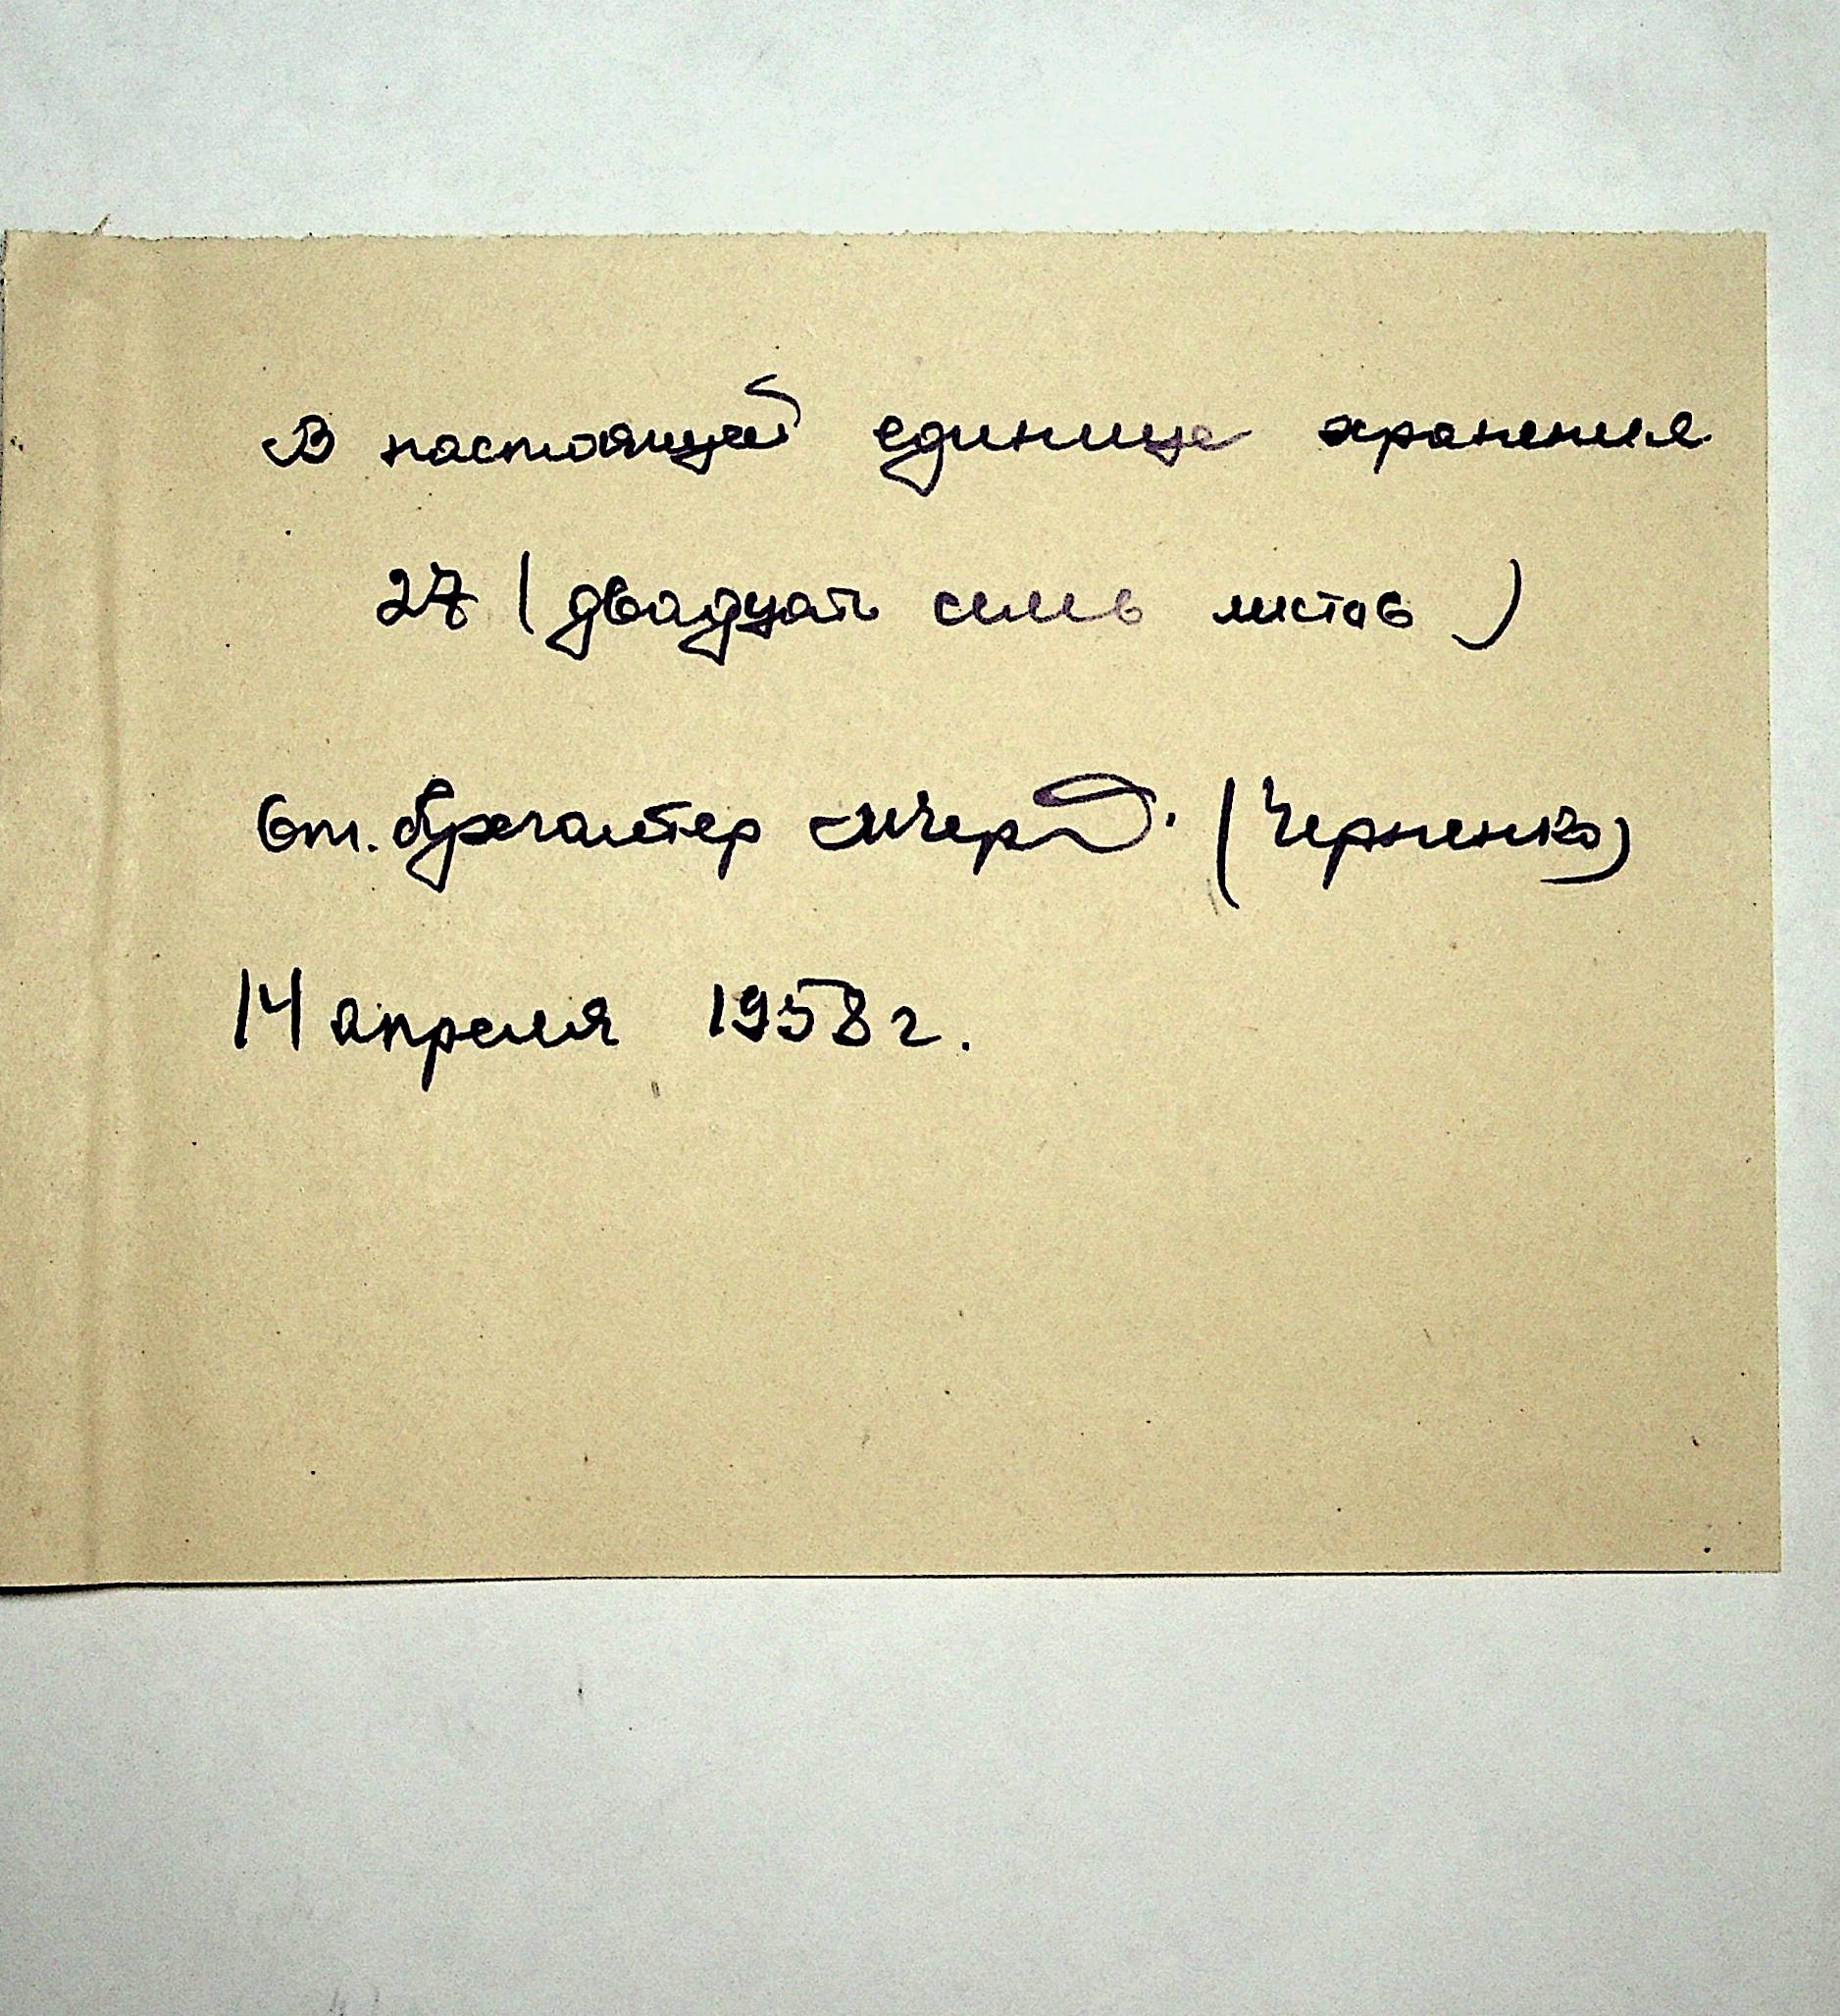 В настоящей единице хранения
27 (двадцать семь листов)
бухгалтер (Черненко)
14 апреля 1958 г.